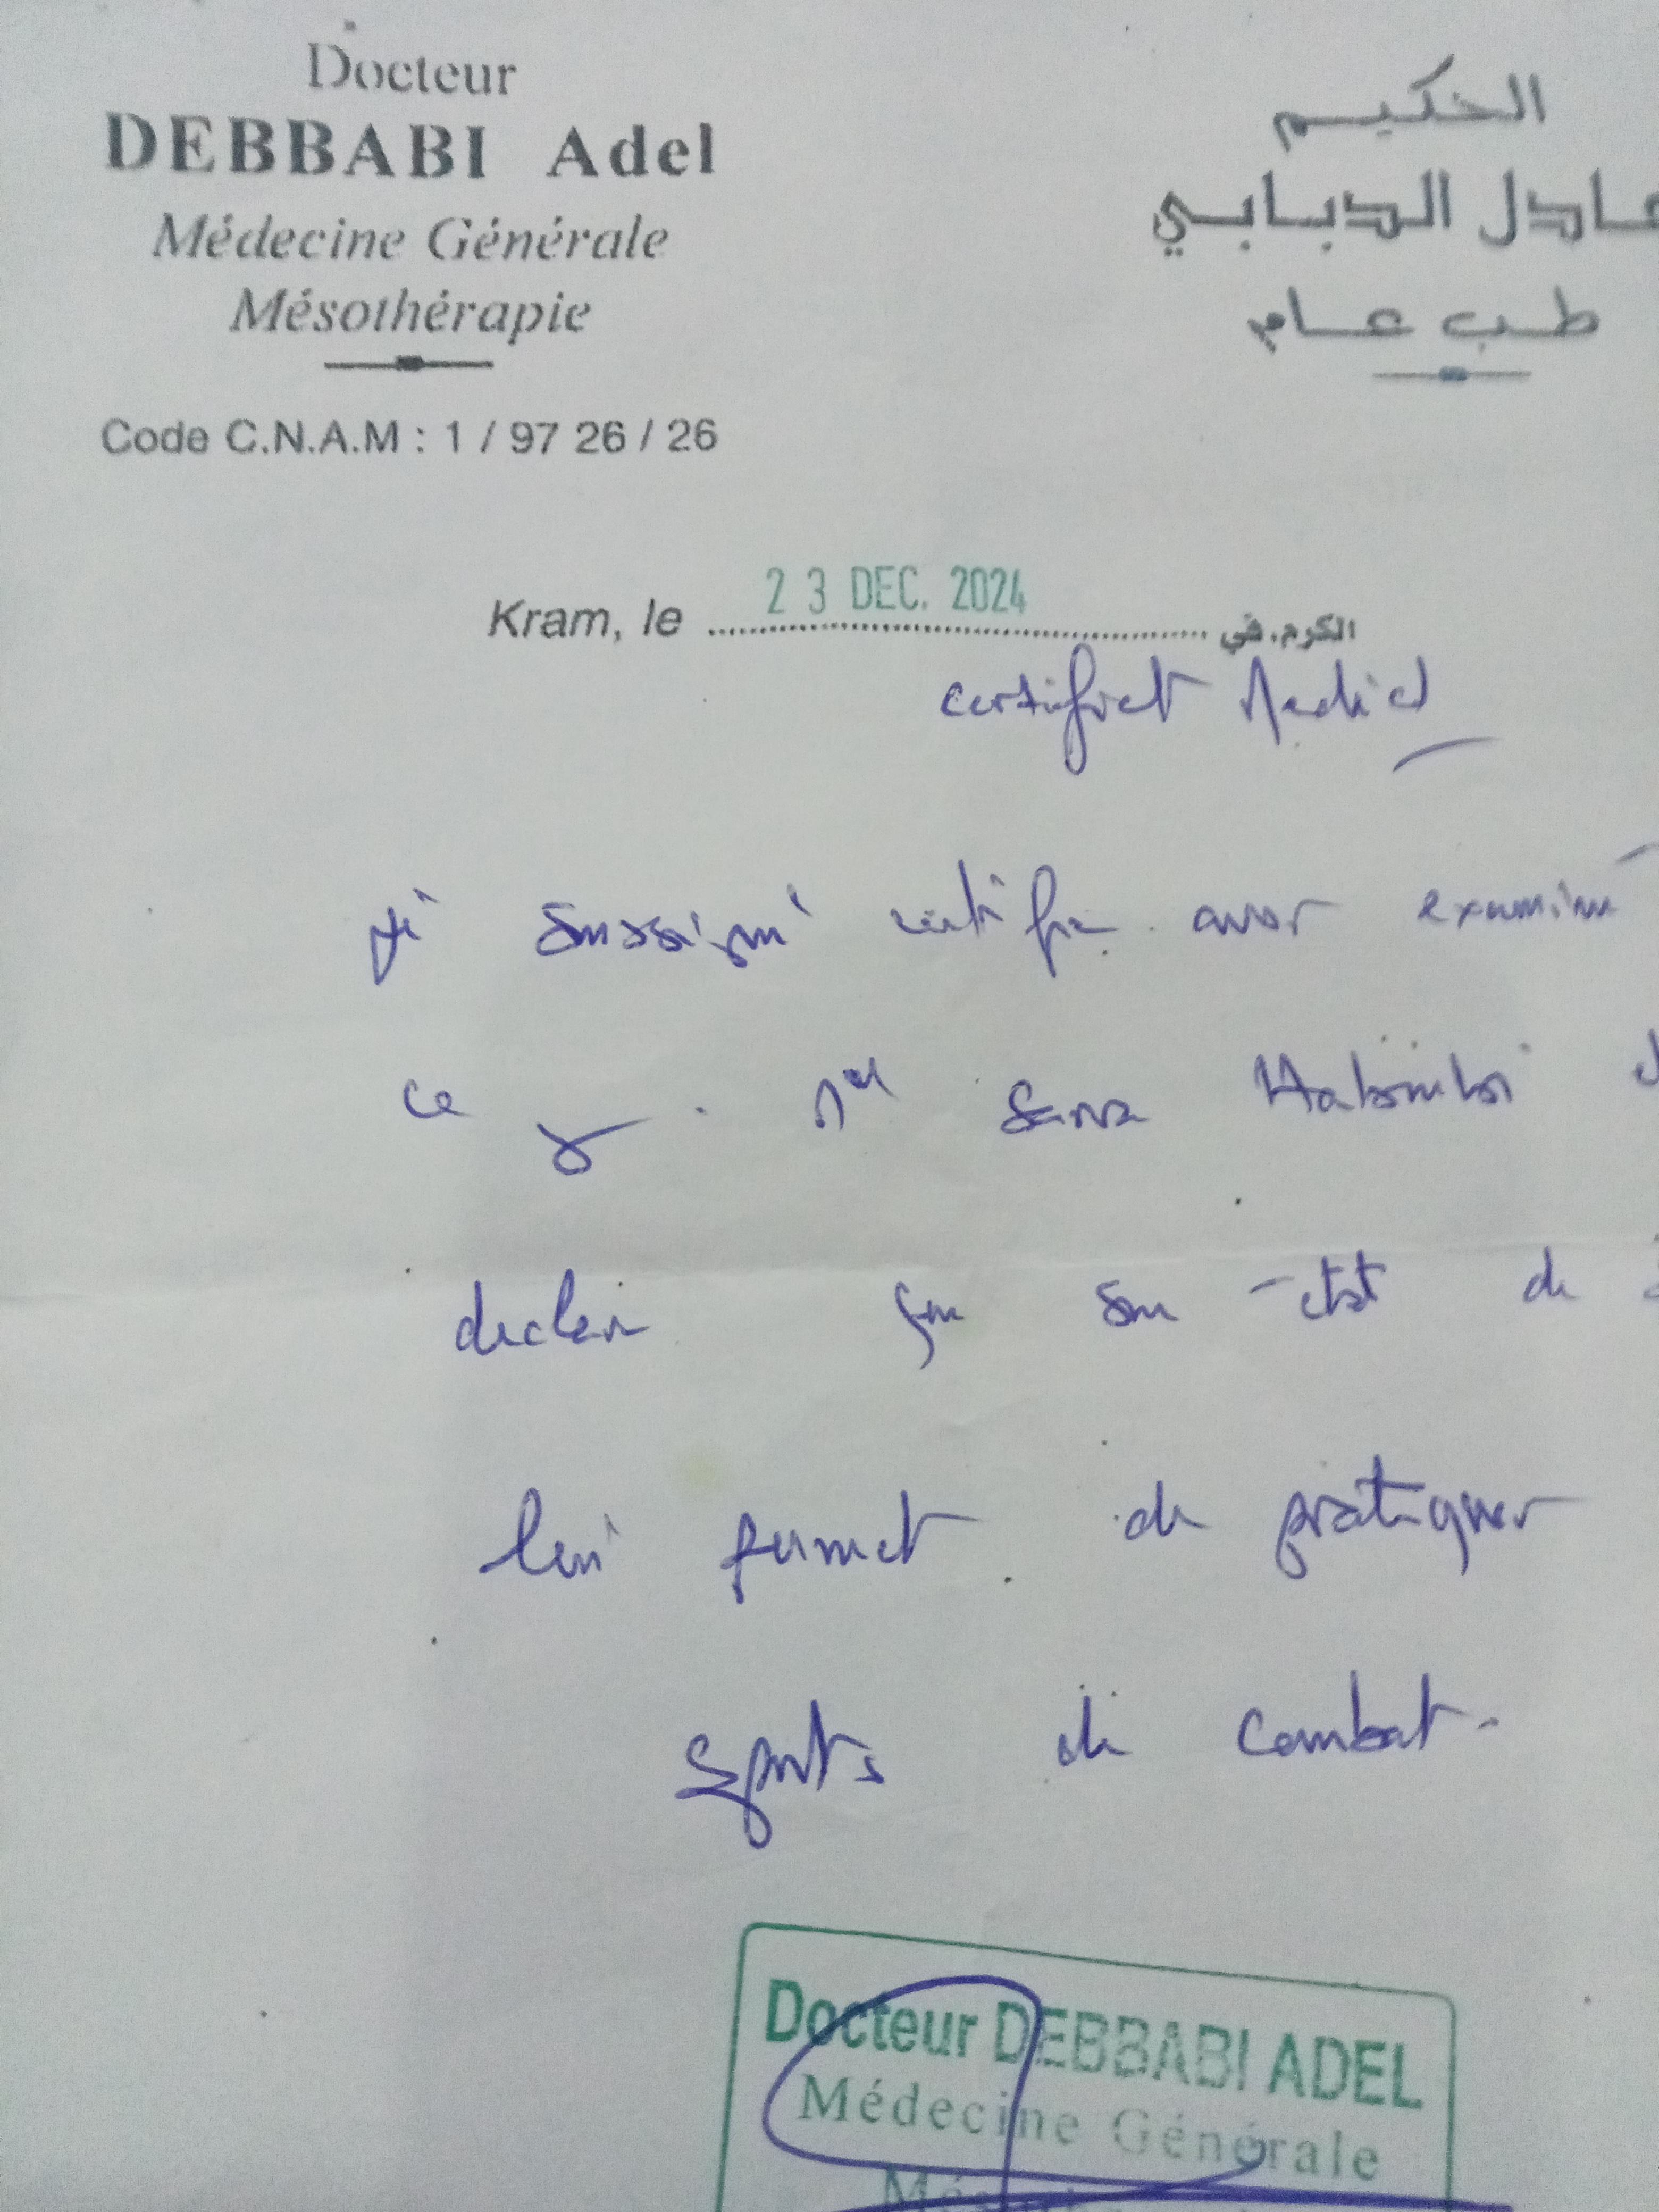 Docteur
DEBBABI Adel
Médecine Générale
Mésothérapie
Code C.N.A.M : 1 / 97 26 / 26
الحكيم
عادل الدبابي
طب عام
Kram, le 23 DEC. 2024 الكرم، في
certificat Medical
je soussigné certifie avoir examiné
ce jour Mel Sarra
declare que son état de
lui permet de pratiquer
sports de combat.
Docteur DEBBABI ADEL
Médecine Générale